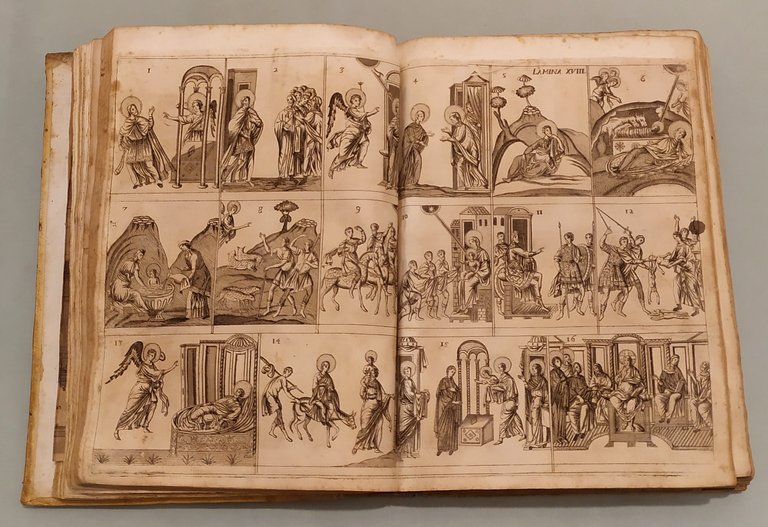 LAMINA XVIII.
1 2 3 4 5 6
7 8 9 10 11 12
13 14 15 16